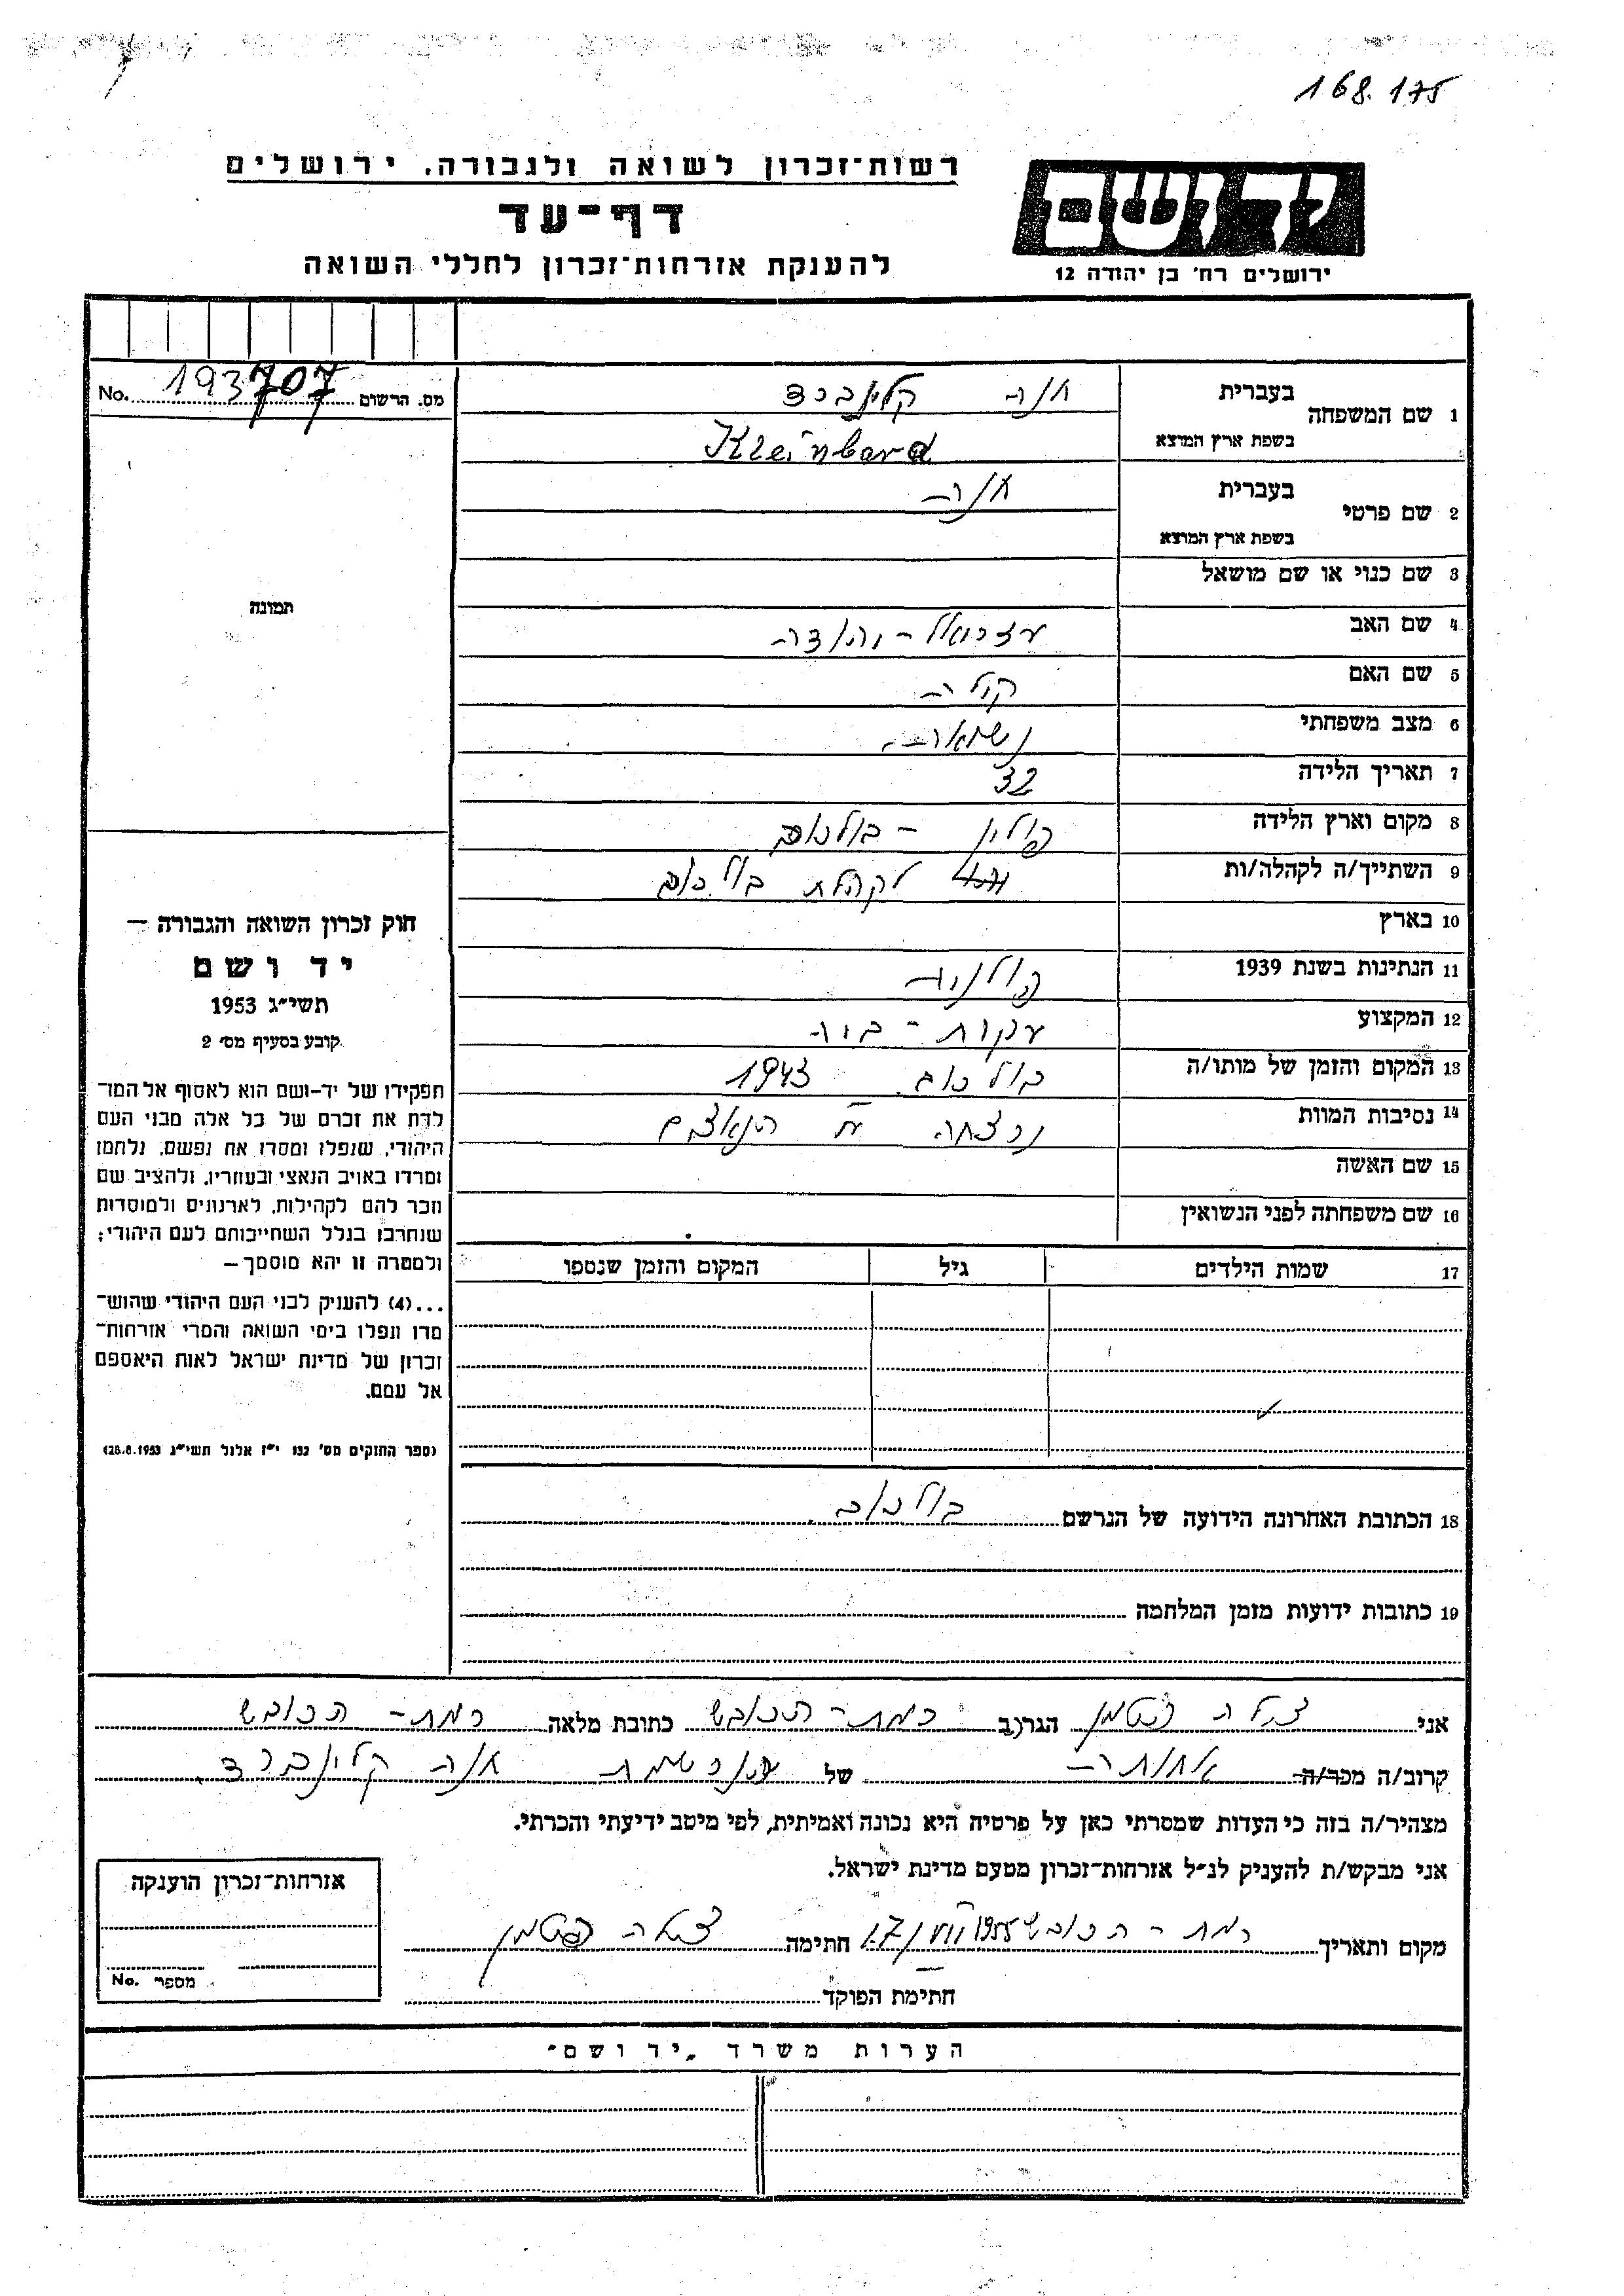 168.175
רשות־זכרון לשואה ולגבורה, ירושלים
דף־עד
להענקת אזרחות־זכרון לחללי השואה
יד ושם
ירושלים רח' בן יהודה 12
מס. הרשום 193707 No.
1 שם המשפחה
בעברית חנה קלינברד
בשפת ארץ המוצא Kleinbard
2 שם פרטי
בעברית חנה
בשפת ארץ המוצא
3 שם כנוי או שם מושאל
4 שם האב עזריאל -
5 שם האם
6 מצב משפחתי נשואה
7 תאריך הלידה 32
8 מקום וארץ הלידה פולין -
9 השתייך/ה לקהלה/ות לקהלת
10 בארץ
11 הנתינות בשנת 1939 פולניה
12 המקצוע עקרת - בית
13 המקום והזמן של מותו/ה 1943
14 נסיבות המוות נרצחה ע״י הנאצים
15 שם האשה
16 שם משפחתה לפני הנשואין
17 שמות הילדים גיל המקום והזמן שנספו
18 הכתובת האחרונה הידועה של הנרשם
19 כתובות ידועות מזמן המלחמה
תמונה
חוק זכרון השואה והגבורה —
יד ושם
תשי״ג 1953
קובע בסעיף מס' 2
תפקידו של יד-ושם הוא לאסוף אל המו־
לדת את זכרם של כל אלה מבני העם
היהודי, שנפלו ומסרו את נפשם, נלחמו
ומרדו באויב הנאצי ובעוזריו, ולהציב שם
וזכר להם לקהילות, לארגונים ולמוסדות
שנחרבו בגלל השתייכותם לעם היהודי;
ולמטרה זו יהא מוסמך —
...(4) להעניק לבני העם היהודי שהוש־
מדו ונפלו בימי השואה והמרי אזרחות־
זכרון של מדינת ישראל לאות היאספם
אל עמם.
(ספר החוקים מס' 132 י״ז אלול תשי״ג 28.8.1953)
אני צילה הגר/ב רמת - הכובש כתובת מלאה רמת - הכובש
קרוב/ה מכר/ה אחותה של חנה קלינברד
מצהיר/ה בזה כי העדות שמסרתי כאן על פרטיה היא נכונה ואמיתית, לפי מיטב ידיעתי והכרתי.
אני מבקש/ת להעניק לנ״ל אזרחות־זכרון מטעם מדינת ישראל.
מקום ותאריך רמת - הכובש 17/VII 1955 חתימה צילה
חתימת הפוקד
אזרחות־זכרון הוענקה
מספר No.
הערות משרד „יד ושם״